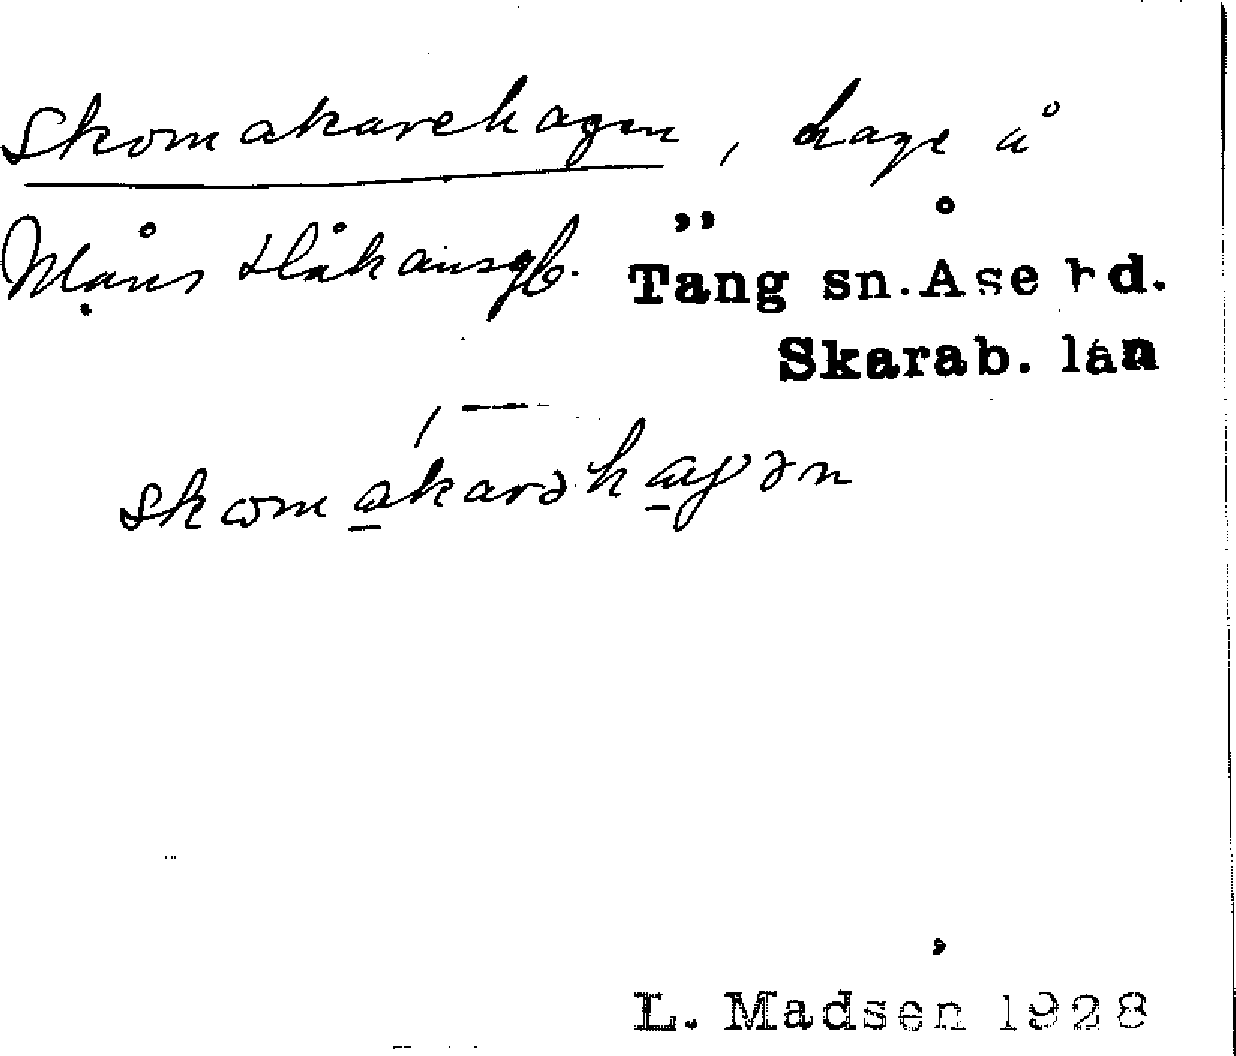 Skomakarehagen, hage å
Måns Håkansgb. Täng sn. Åse hd.
Skarab. län
skomakarəhagən
L. Madsen 1928